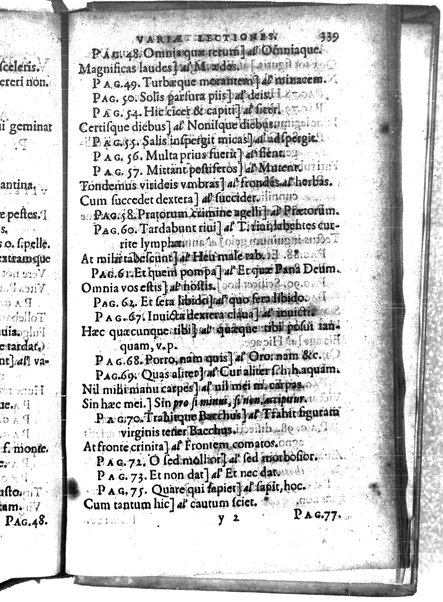 sceleris.
cereri non.
ui geminat
antina.
pestes.
s o. s.pelle.
extramque
uia.
tardat.
] al va-
s. monte.
usto.
s.
PAG.48.
VARIÆ LECTIONES. 339
PAG.48. Omnia quæ rerum] al Omniaque.
Magnificas laudes] al M. ædes.
PAG.49. Turbæque morantem] al minacem.
PAG. 50. Solis parsura piis] al deis.
PAG. 54. Hic cicer & capiti] al sicer.
Certisque diebus] al Nonisque diebus.
PAG.55. Salis inspergit micas] al adspergit.
PAG. 56. Multa prius fuerit] al fient.
PAG. 57. Mittant pestiferos] al Mutent.
Tondemus virideis vmbras] al frondes al herbas.
Cum succedet dextera] al succider.
PAG.58. Pratorum crimine agelli] al Prætorum.
PAG.60. Tardabunt riui] al T. riui labentes cur-
rite lymphæ.
At mihi tabescunt] al Heu male rab.
PAG.61. Et quem pompa] al Et quæ Pana Deum.
Omnia vos estis] al hostis.
PAG.62. Et sera libido] al quo fera libido.
PAG.67. Inuicta dextera claua] al inuicti.
Hæc quæcunque tibi] al quæque tibi posui tan-
quam, v.p.
PAG.68. Porro, nam quis] al Oro. nam &c.
PAG.69. Quas aliter] al Cui aliter s.h.h.aquam.
Nil mihi manu carpes] al nil mei m. carpas.
Sin hæc mei.] Sin pro si minus, si non, accipitur.
PAG.70. Trahitque Bacchus] al Trahit figuram
virginis tener Bacchus.
At fronte crinita] al Frontem comatos.
PAG. 72. O sed mollior] al sed morbosior.
PAG. 73. Et non dat] al Et nec dat.
PAG. 75. Quare qui sapiet] al sapit, hoc.
Cum tantum hic] al cautum sciet.
y 2 PAG.77.